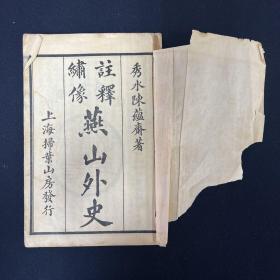 秀水陳蘊齋著
註釋
繡像
燕山外史
上海掃葉山房發行